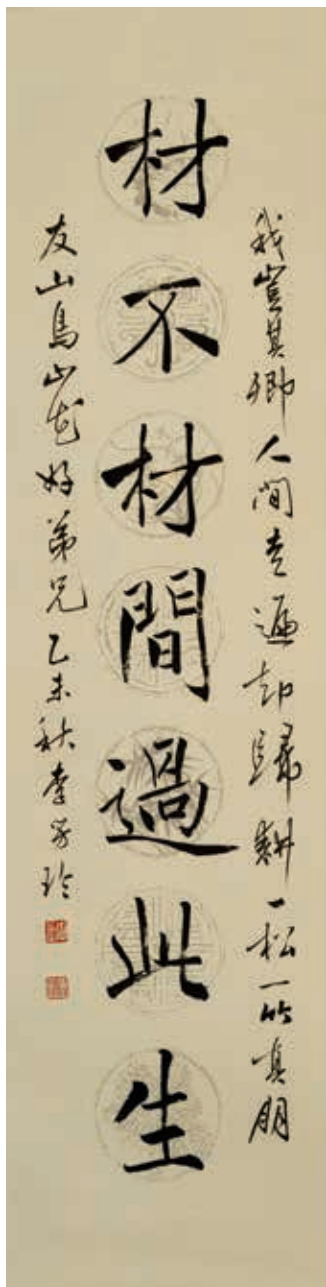 材不材間過此生
我豈其卿人間走遍却歸耕一松一竹真朋
友山鳥山花好弟兄乙未秋李玲